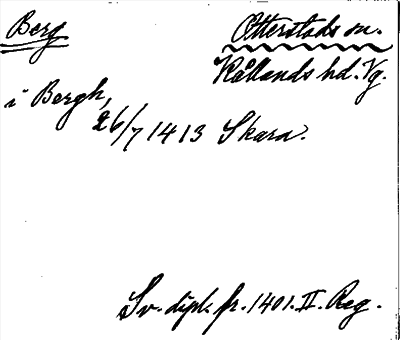 Berg
Otterstads sn.
Kållands hd. Vg.
i Bergh,
26/7 1413 Skara.
Sv. dipl. fr. 1401. II. Reg.